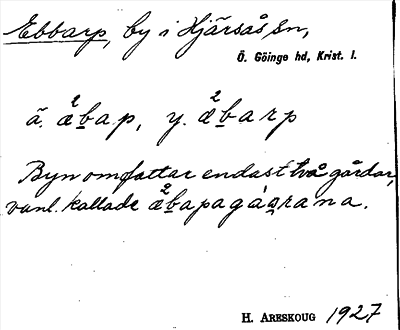 Ebbarp, by i Hjärsås sn,
Ö. Göinge hd, Krist. l.
ä. ²æbap, y. ²æbarp
Byn omfattar endast två gårdar,
vanl. kallade ²æbapagårana.
H. ARESKOUG 1927